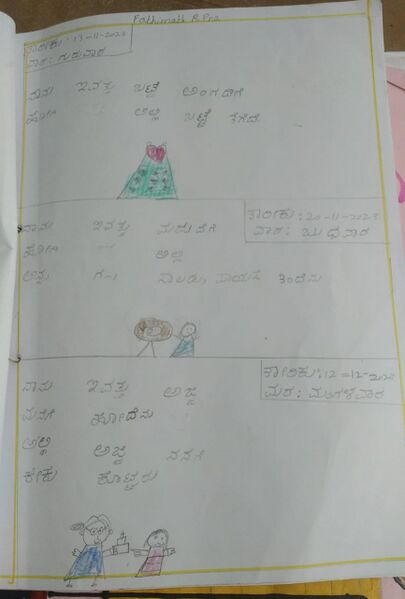 Fathimath R Pra
ತಾರೀಕು: 13-11-2023
ವಾರ: ಗುರುವಾರ
ನಾನು ಇವತ್ತು ಬಟ್ಟೆ ಅಂಗಡಿಗೆ
ಹೋಗಿ ಅಲ್ಲಿ ಬಟ್ಟೆ ತೆಗೆದೆ.
ತಾರೀಕು: 20-11-2023
ವಾರ: ಬುಧವಾರ
ನಾನು ಇವತ್ತು ಮದುವೆಗೆ
ಹೋಗಿ ಅಲ್ಲಿ
ಅನ್ನ ಸಲಾಡು, ಪಾಯಸ ತಿಂದೆನು
ತಾರೀಕು: 12-12-2023
ಮರ: ಮಂಗಳವಾರ
ನಾನು ಇವತ್ತು ಅಜ್ಜಿ
ಮನೆಗೆ ಹೋದೆನು
ಅಲ್ಲಿ ಅಜ್ಜಿ ನನಗೆ
ಕೇಕು ಕೊಟ್ಟರು